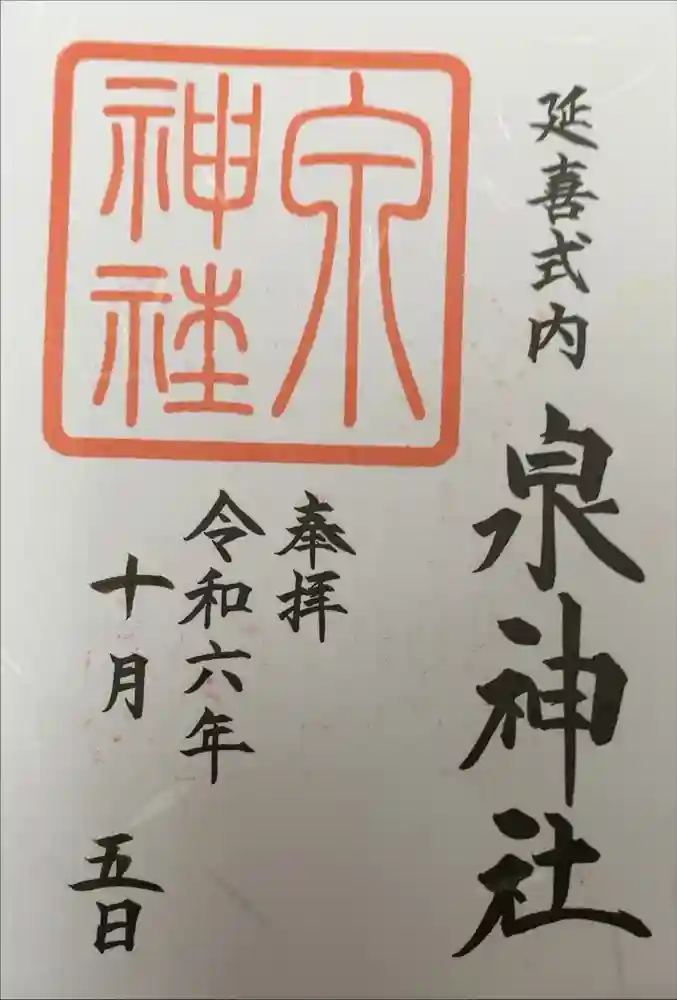 延喜式内 泉神社
泉
神社
奉拝
令和六年
十月 五日